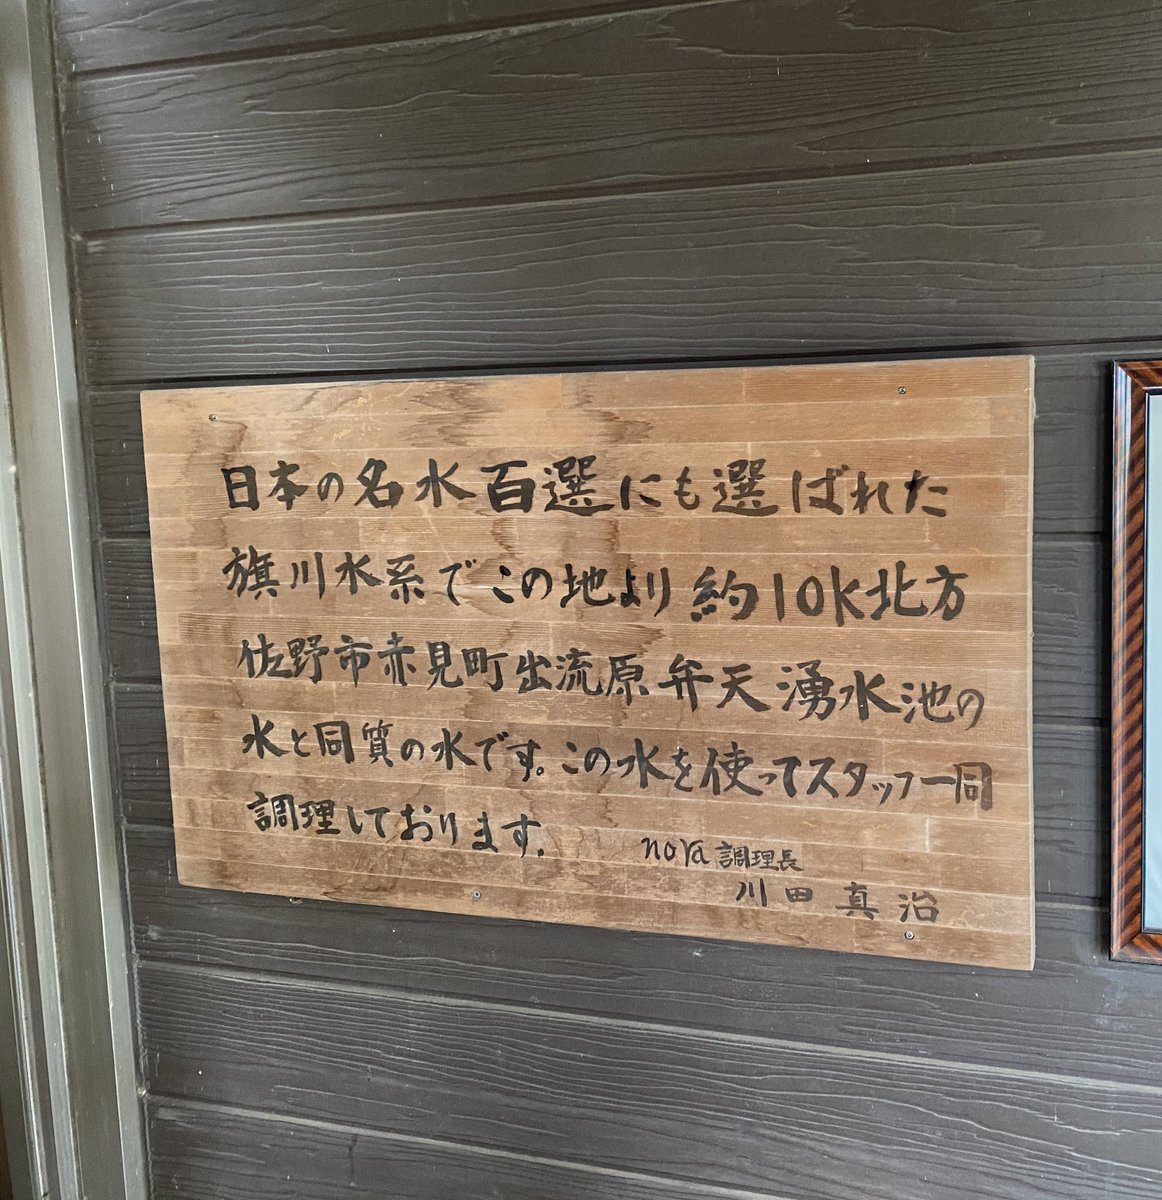 日本の名水百選にも選ばれた
旗川水系でこの地より約10K北方
佐野市赤見町出流原弁天湧水池の
水と同質の水です。この水を使ってスタッフ一同
調理しております。
nora 調理長
川田真治